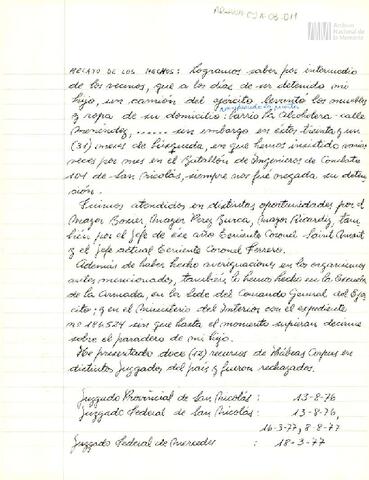 Archivo
Nacional de
la Memoria
RELATO DE LOS HECHOS: Logramos saber por intermedio
de los vecinos, que a los días de ser detenido mi
hijo, un camión del ejército levantó los muebles
rompiendo la puerta
y ropa de su domicilio: barrio La Alcoholera calle
Menéndez, ...... sin embargo en estos treinta y un
(31) meses de búsqueda, en que hemos insistido varias
veces por mes en el Batallón de Ingenieros de Combate
101 de San Nicolás, siempre nos fué negada su deten-
sión.
Fuimos atendidos en distintas oportunidades por el
Mayor Bossie, Mayor Perez Burca, Mayor Ricardiz, tam-
bién por el Jefe de ese año Teniente Coronel Saint Amant
y el Jefe actual Teniente Coronel Ferrero.
Además de haber hecho averiguaciones en los organismos
antes mencionados, también lo hemos hecho en la Escuela
de la Armada, en la sede del Comando General del Ejér-
cito; y en el Ministerio del Interior con el expediente
nº 186.524 sin que hasta el momento supieran decirme
sobre el paradero de mi hijo.
He presentado doce (12) recursos de Hábeas Corpus en
distintos Juzgados del país y fueron rechazados.
Juzgado Provincial de San Nicolás : 13-8-76
Juzgado Federal de San Nicolás : 13-8-76,
16-3-77, 8-8-77
Juzgado Federal de Mercedes : 18-3-77